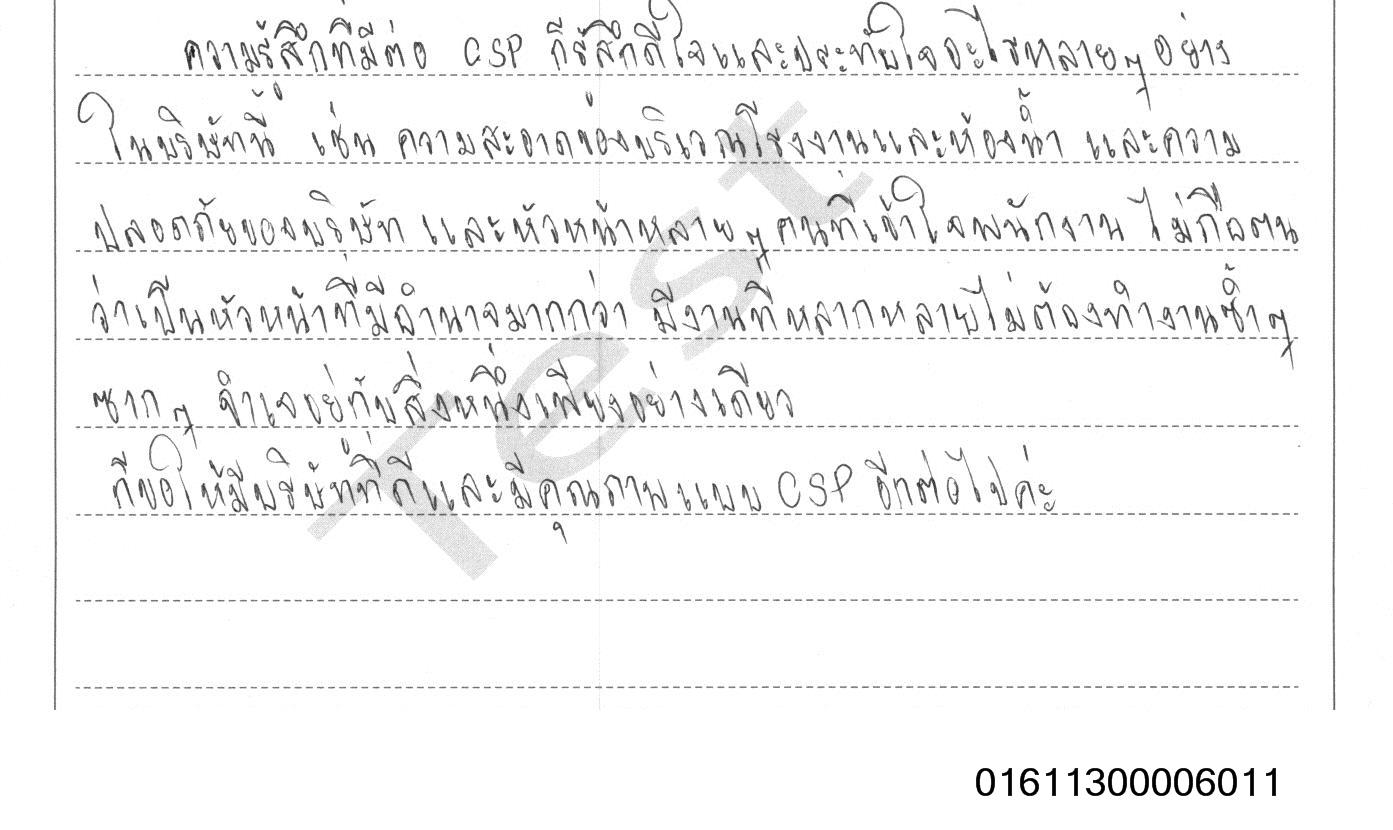 ความรู้สึกที่มีต่อ CSP ก็รู้สึกดีใจและประทับใจอะไรหลายๆ อย่าง
ในบริษัทนี้ เช่น ความสะอาดของบริเวณโรงงานและห้องน้ำ และความ
ปลอดภัยของบริษัท และหัวหน้าหลายๆ คนที่เข้าใจพนักงาน ไม่ถือตน
ว่าเป็นหัวหน้าที่มีอำนาจมากกว่า มีงานที่หลากหลายไม่ต้องทำงานซ้ำๆ
ซากๆ จำเจอยู่กับสิ่งหนึ่งเพียงอย่างเดียว
ก็ขอให้มีบริษัทที่ดีและมีคุณภาพแบบ CSP อีกต่อไปค่ะ
Test
01611300006011